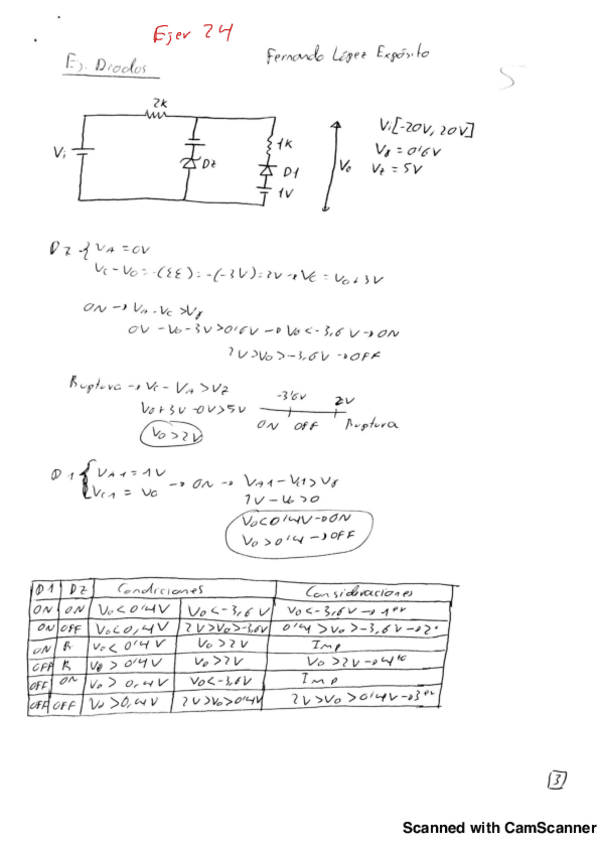 Ejer 24
Fernando López Expósito
Ej. Diodos
5
2k
Vi
DZ
1k
D1
1V
Vo
Vi[-20V, 20V]
Vγ = 0'6V
Vz = 5V
DZ { VA = 0V
Vc - Vo = -(ΣE) = -(-3V) = 3V → Vc = Vo + 3V
ON → VA - Vc > Vγ
0V - Vo - 3V > 0'6V → Vo < -3,6V → ON
2V > Vo > -3,6V → OFF
Ruptura → Vc - VA > Vz
Vo + 3V - 0V > 5V
Vo > 2V
-3'6V 2V
ON OFF Ruptura
D1 { VA1 = 1V
Vc1 = Vo → ON → VA1 - Vc1 > Vγ
1V - Vo > 0
Vo < 0'4V → ON
Vo > 0'4 → OFF
D1 DZ Condiciones Consideraciones
ON ON Vo < 0'4V Vo < -3,6V Vo < -3,6V → 1er
ON OFF Vo < 0,4V 2V > Vo > -3,6V 0'4 > Vo > -3,6V → 2º
ON R Vo < 0'4V Vo > 2V Imp
OFF R Vo > 0'4V Vo > 2V Vo > 2V → 4to
OFF ON Vo > 0,4V Vo < -3,6V Imp
OFF OFF Vo > 0,4V 2V > Vo > 0'4V 2V > Vo > 0'4V → 3er
3
Scanned with CamScanner